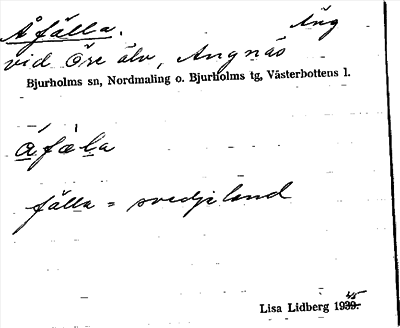 Åfälla. Äng
vid Öre älv, Angnäs
Bjurholms sn, Nordmaling o. Bjurholms tg, Västerbottens l.
åfæla
fälla = svedjeland
Lisa Lidberg 1945